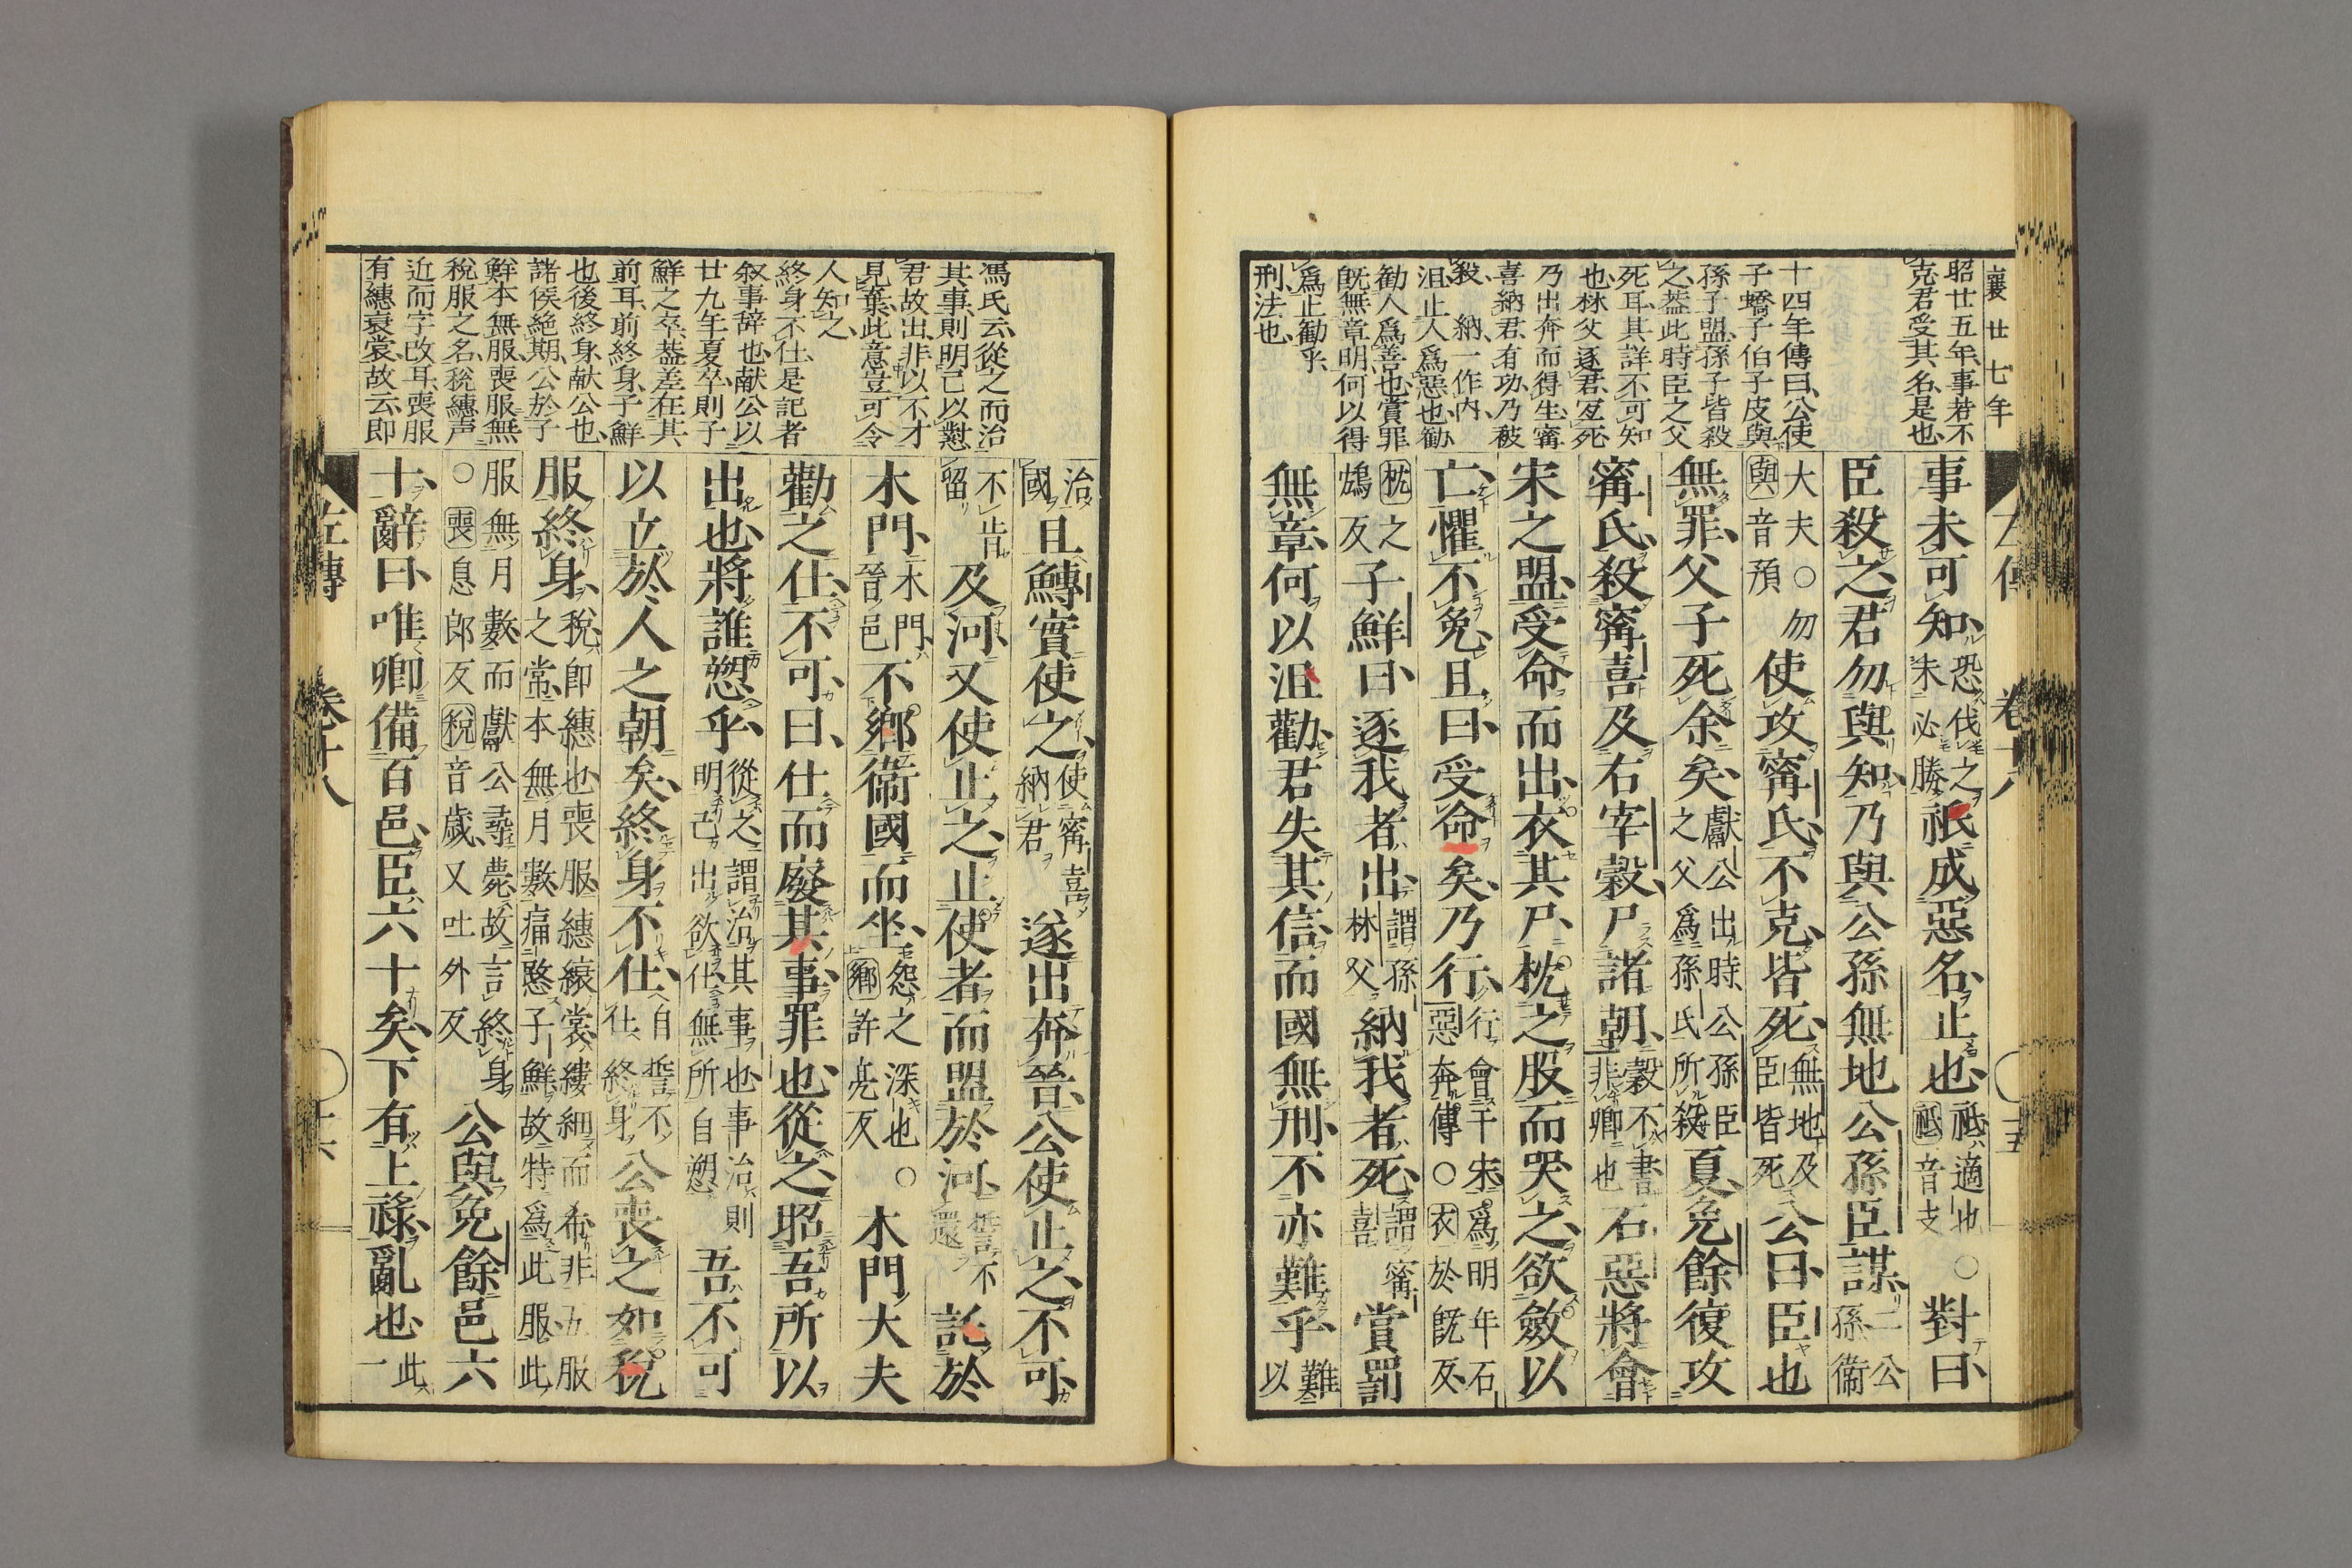 襄廿七年
昭廿五年事若不
克君受其名是也
十四年傳曰公使
子蟜子伯子皮與
孫子盟孫子皆殺
之葢此時臣之父
死耳其詳不可知
也林父逐君冝死
乃出奔而得生甯
喜納君有功乃被
殺 納一作内
沮止人爲惡也勸
勸人爲善也賞罪
既無章明何以得
爲止勸乎
刑法也
事未可知恐伐之未必勝祇成惡名止也祇適也○祇音支對曰
臣殺之君勿與知乃與公孫無地公孫臣謀二公孫衞
大夫○勿與音預使攻甯氏不克皆死無地及臣皆死公曰臣也
無罪父子死余矣獻公出時公孫臣之父爲孫氏所殺夏免餘復攻
甯氏殺甯喜及右宰穀尸諸朝穀不書非卿也石惡將會
宋之盟受命而出衣其尸枕之股而哭之欲斂以
亡懼不免且曰受命矣乃行行會于宋爲明年石惡奔傳○衣於既反
枕之鴆反子鮮曰逐我者出謂孫林父納我者死謂甯喜賞罰
無章何以沮勸君失其信而國無刑不亦難乎難以
馮氏云從之而治
其事則明己以懟
君故出非以不才
見棄此意豈可令
人知之
終身不仕是記者
叙事辞也献公以
廿九年夏卒則子
鮮之卒葢差在其
前耳前終身子鮮
也後終身献公也
諸侯絶期公於子
鮮本無服喪服無
稅服之名稅繐声
近而字改耳喪服
有繐衰裳故云即
治國不肯且鱄實使之使甯喜納君遂出奔晉公使止之不可
留及河又使止之止使者而盟於河誓不還託於
木門木門晉邑不鄉衞國而坐怨之深也○鄉許亮反木門大夫
勸之仕不可曰仕而廢其事罪也從之昭吾所以
出也將誰愬乎從之謂治其事也事治則明己出欲仕無所自愬吾不可
以立於人之朝矣終身不仕自誓不仕終身公喪之如稅
服終身稅即繐也喪服繐縗裳縷細而希非五服之常本無月數痛愍子鮮故特爲此服此
服無月數而獻公尋薨故言終身○喪息郎反稅音歲又吐外反公與免餘邑六
十辭曰唯卿備百邑臣六十矣下有上祿亂也此一
左傳 卷十八 十六